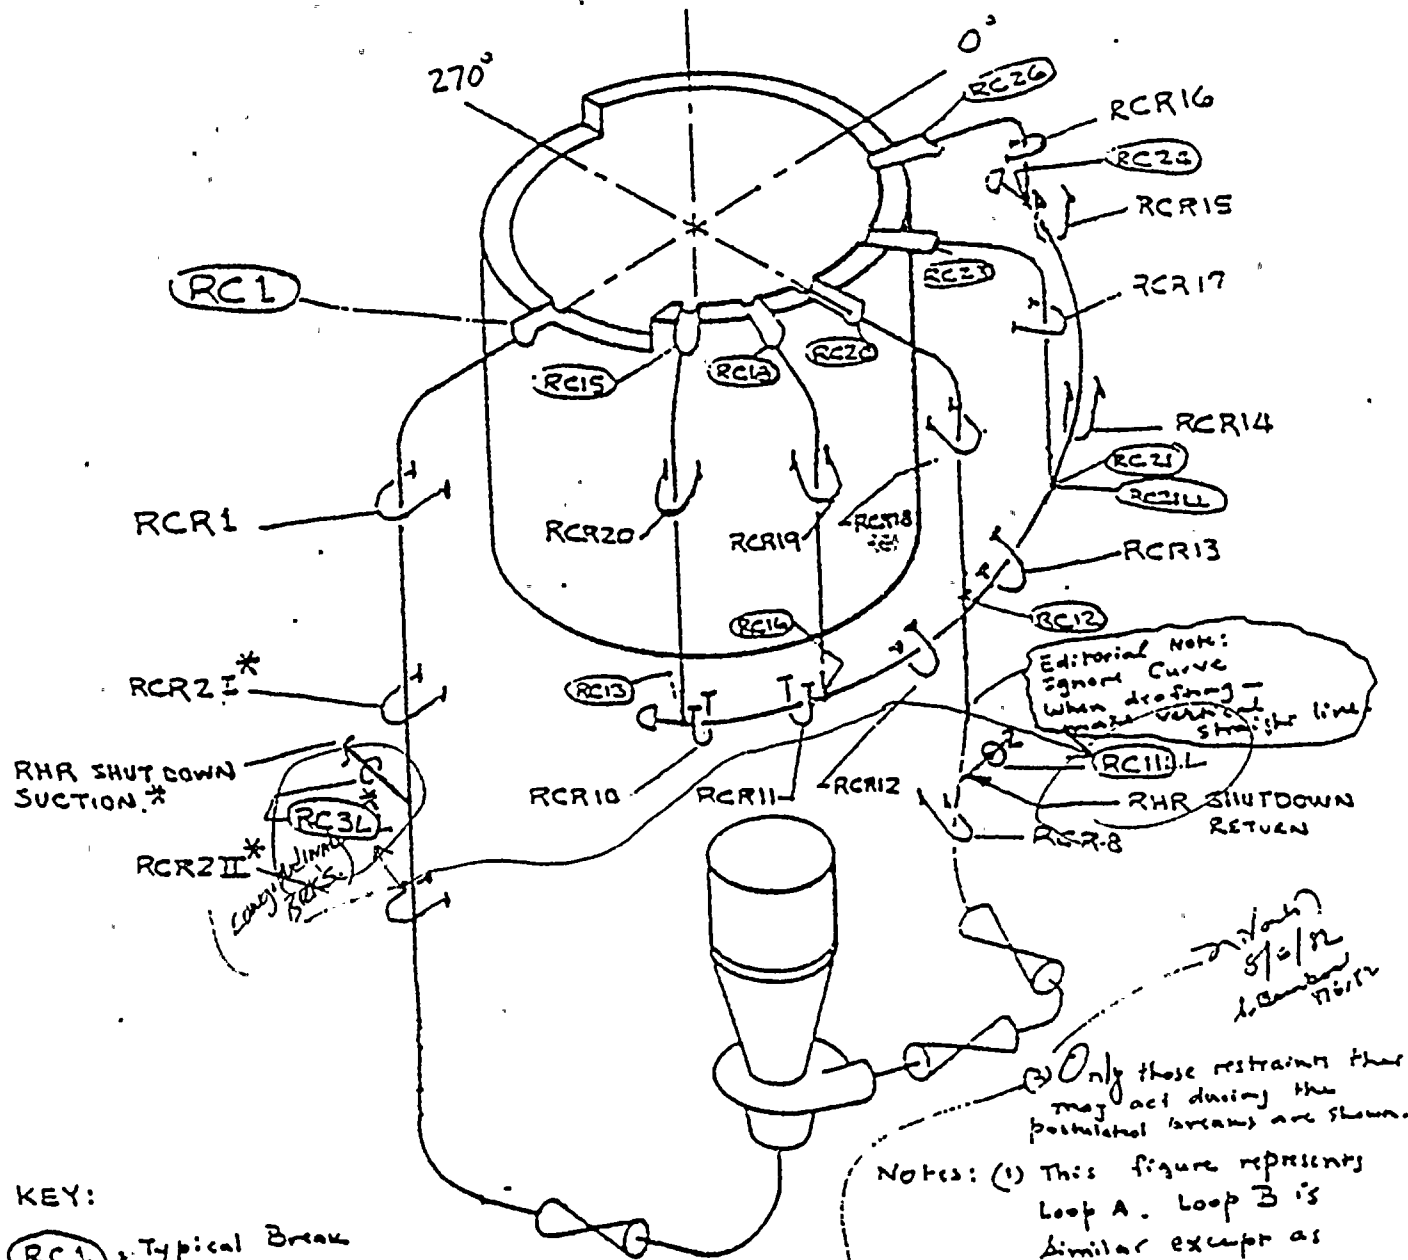 270°
0°
RC26
RCR16
RCR15
RC1
RC23
RCR17
RC20
RC15
RCR14
RC21
RC21LL
RCR1
RCR20
RCR19
RCR18
RCR13
RC12
RC14
Editorial Note:
Ignore Curve
when drafting —
make vertical
straight line.
RCR2 I*
RC13
RHR SHUTDOWN
SUCTION.*
RC11 L
RCR10
RCR11
RCR12
RHR SHUTDOWN
RETURN
RC3L
RCR-8
RCR2 II*
LONGITUDINAL
BRKS.
5/6/82
(2) Only those restraints that
may act during the
postulated breaks are shown.
Notes: (1) This figure represents
Loop A. Loop B is
similar except as
KEY:
RC1 : Typical Break